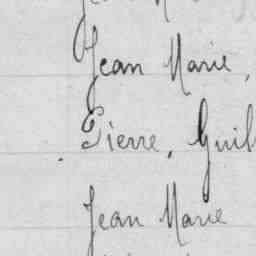 Jean Marie,
Pierre, Guil
Jean Marie